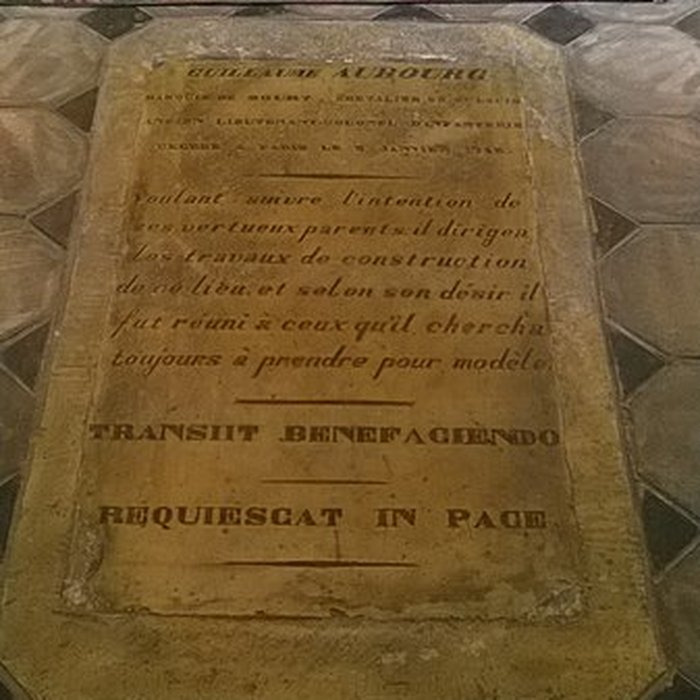 GUILLAUME AUBOURG
MARQUIS DE BOURY, CHEVALIER DE ST LOUIS
ANCIEN LIEUTENANT-COLONEL D'INFANTERIE
DÉCÉDÉ A PARIS LE JANVIER
voulant suivre l'intention de
ses vertueux parents, il dirigea
les travaux de construction
de ce lieu, et selon son désir il
fut réuni à ceux qu'il chercha
toujours à prendre pour modèle.
TRANSIIT BENEFACIENDO
REQUIESCAT IN PACE